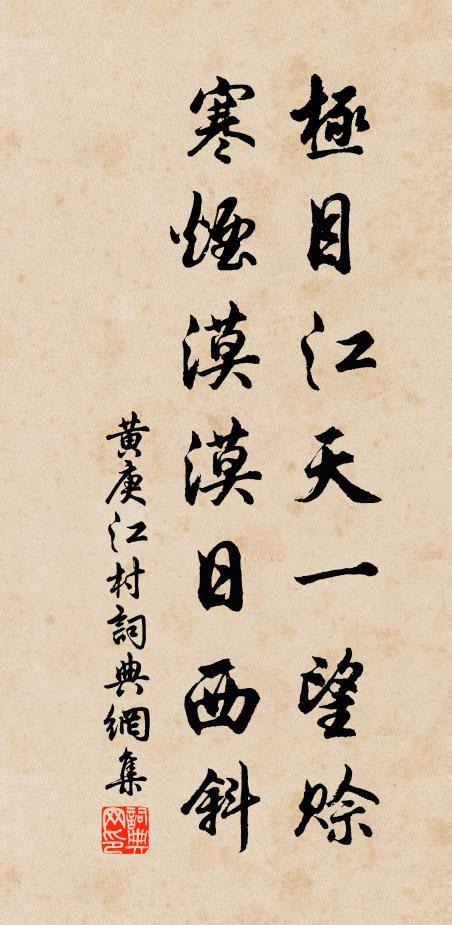 極目江天一望賒
寒煙漠漠日西斜
黃庚江村詞典網集
詞典網印